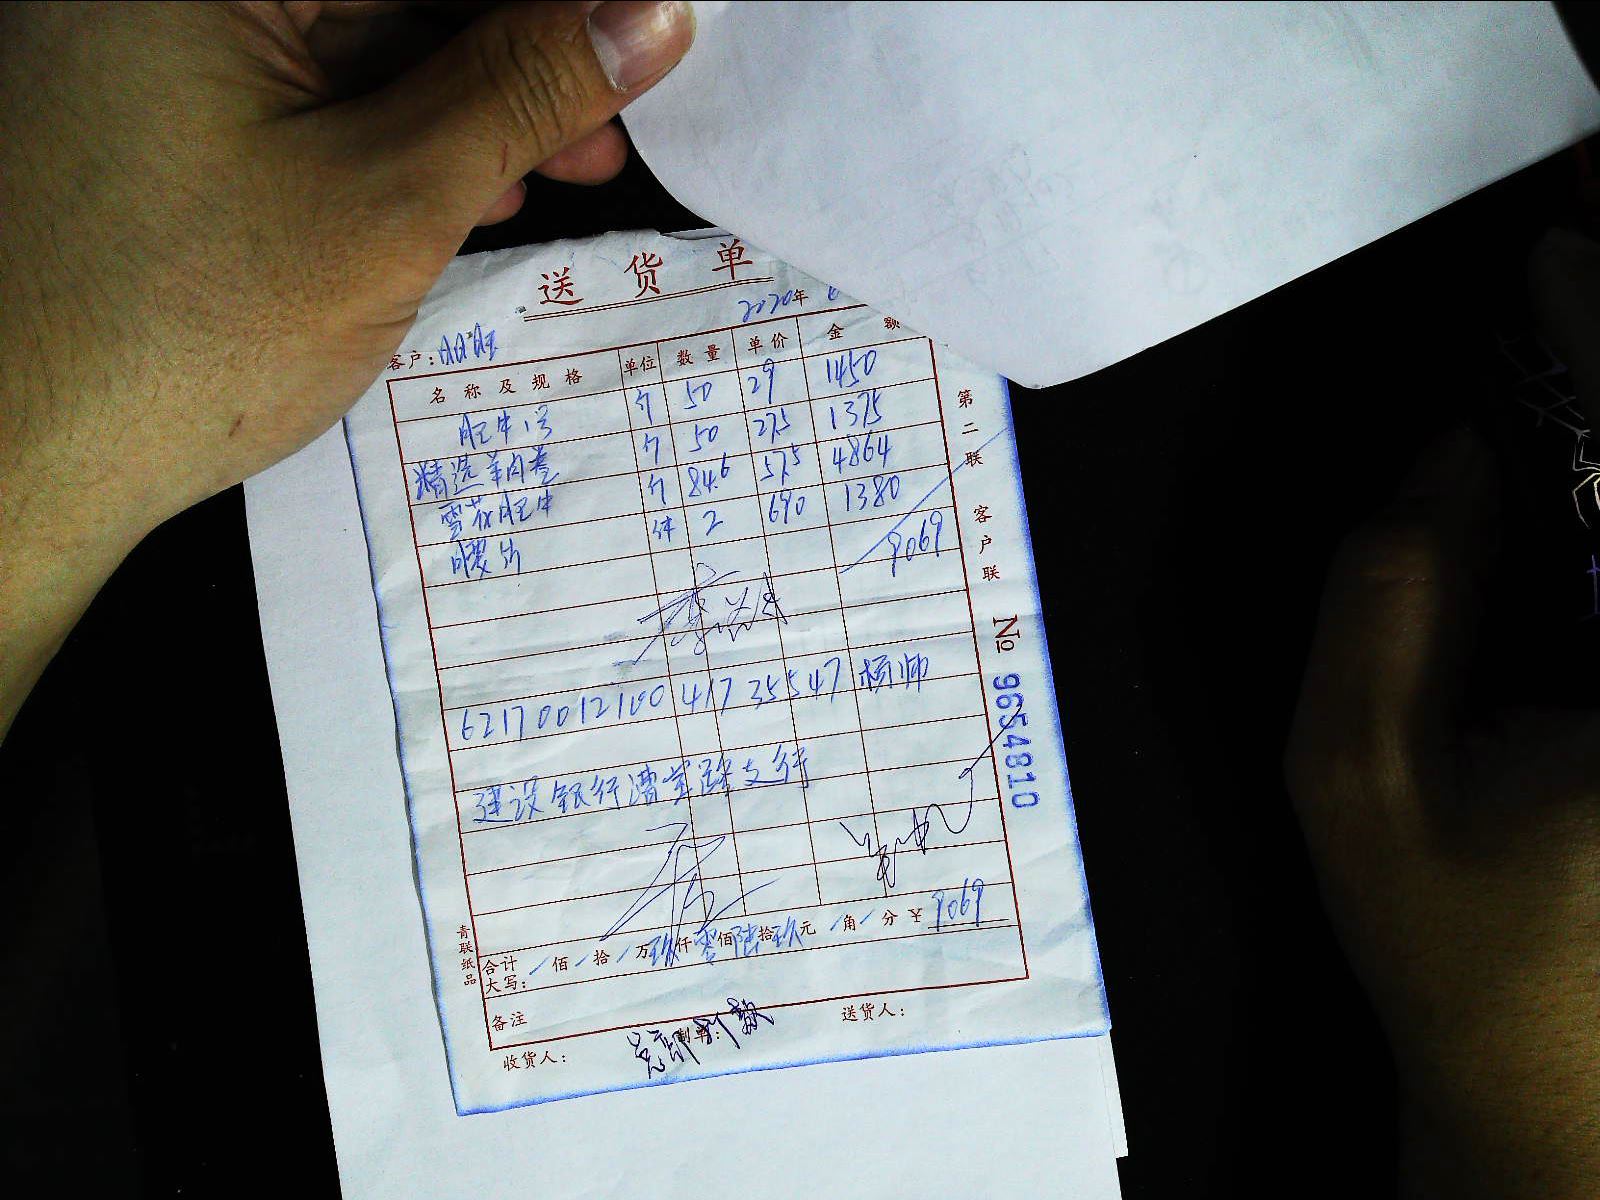 送货单
2020年 6
客户:
名称及规格 单位 数量 单价 金额
肥牛1号 斤 50 29 1450
精选羊肉卷 斤 50 27.5 1375
雪花肥牛 斤 84.6 57.5 4864
件 2 690 1380
9069
6217001210041735547 杨帅
建设银行漕宝路支行
合计大写: / 佰 / 拾 / 万 玖 仟 零 佰 陆 拾 玖 元 / 角 / 分 ¥ 9069
备注
收货人: 制单: 送货人:
第二联 客户联
No 9654810
青联纸品